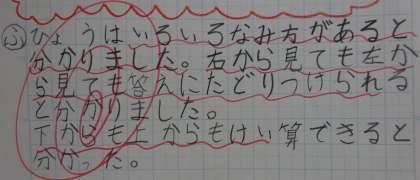 ふ ひょうはいろいろなみ方があると
分かりました。右から見ても左か
ら見ても答えにたどりつけられる
と分かりました。
下からも上からもけい算できると
分かった。